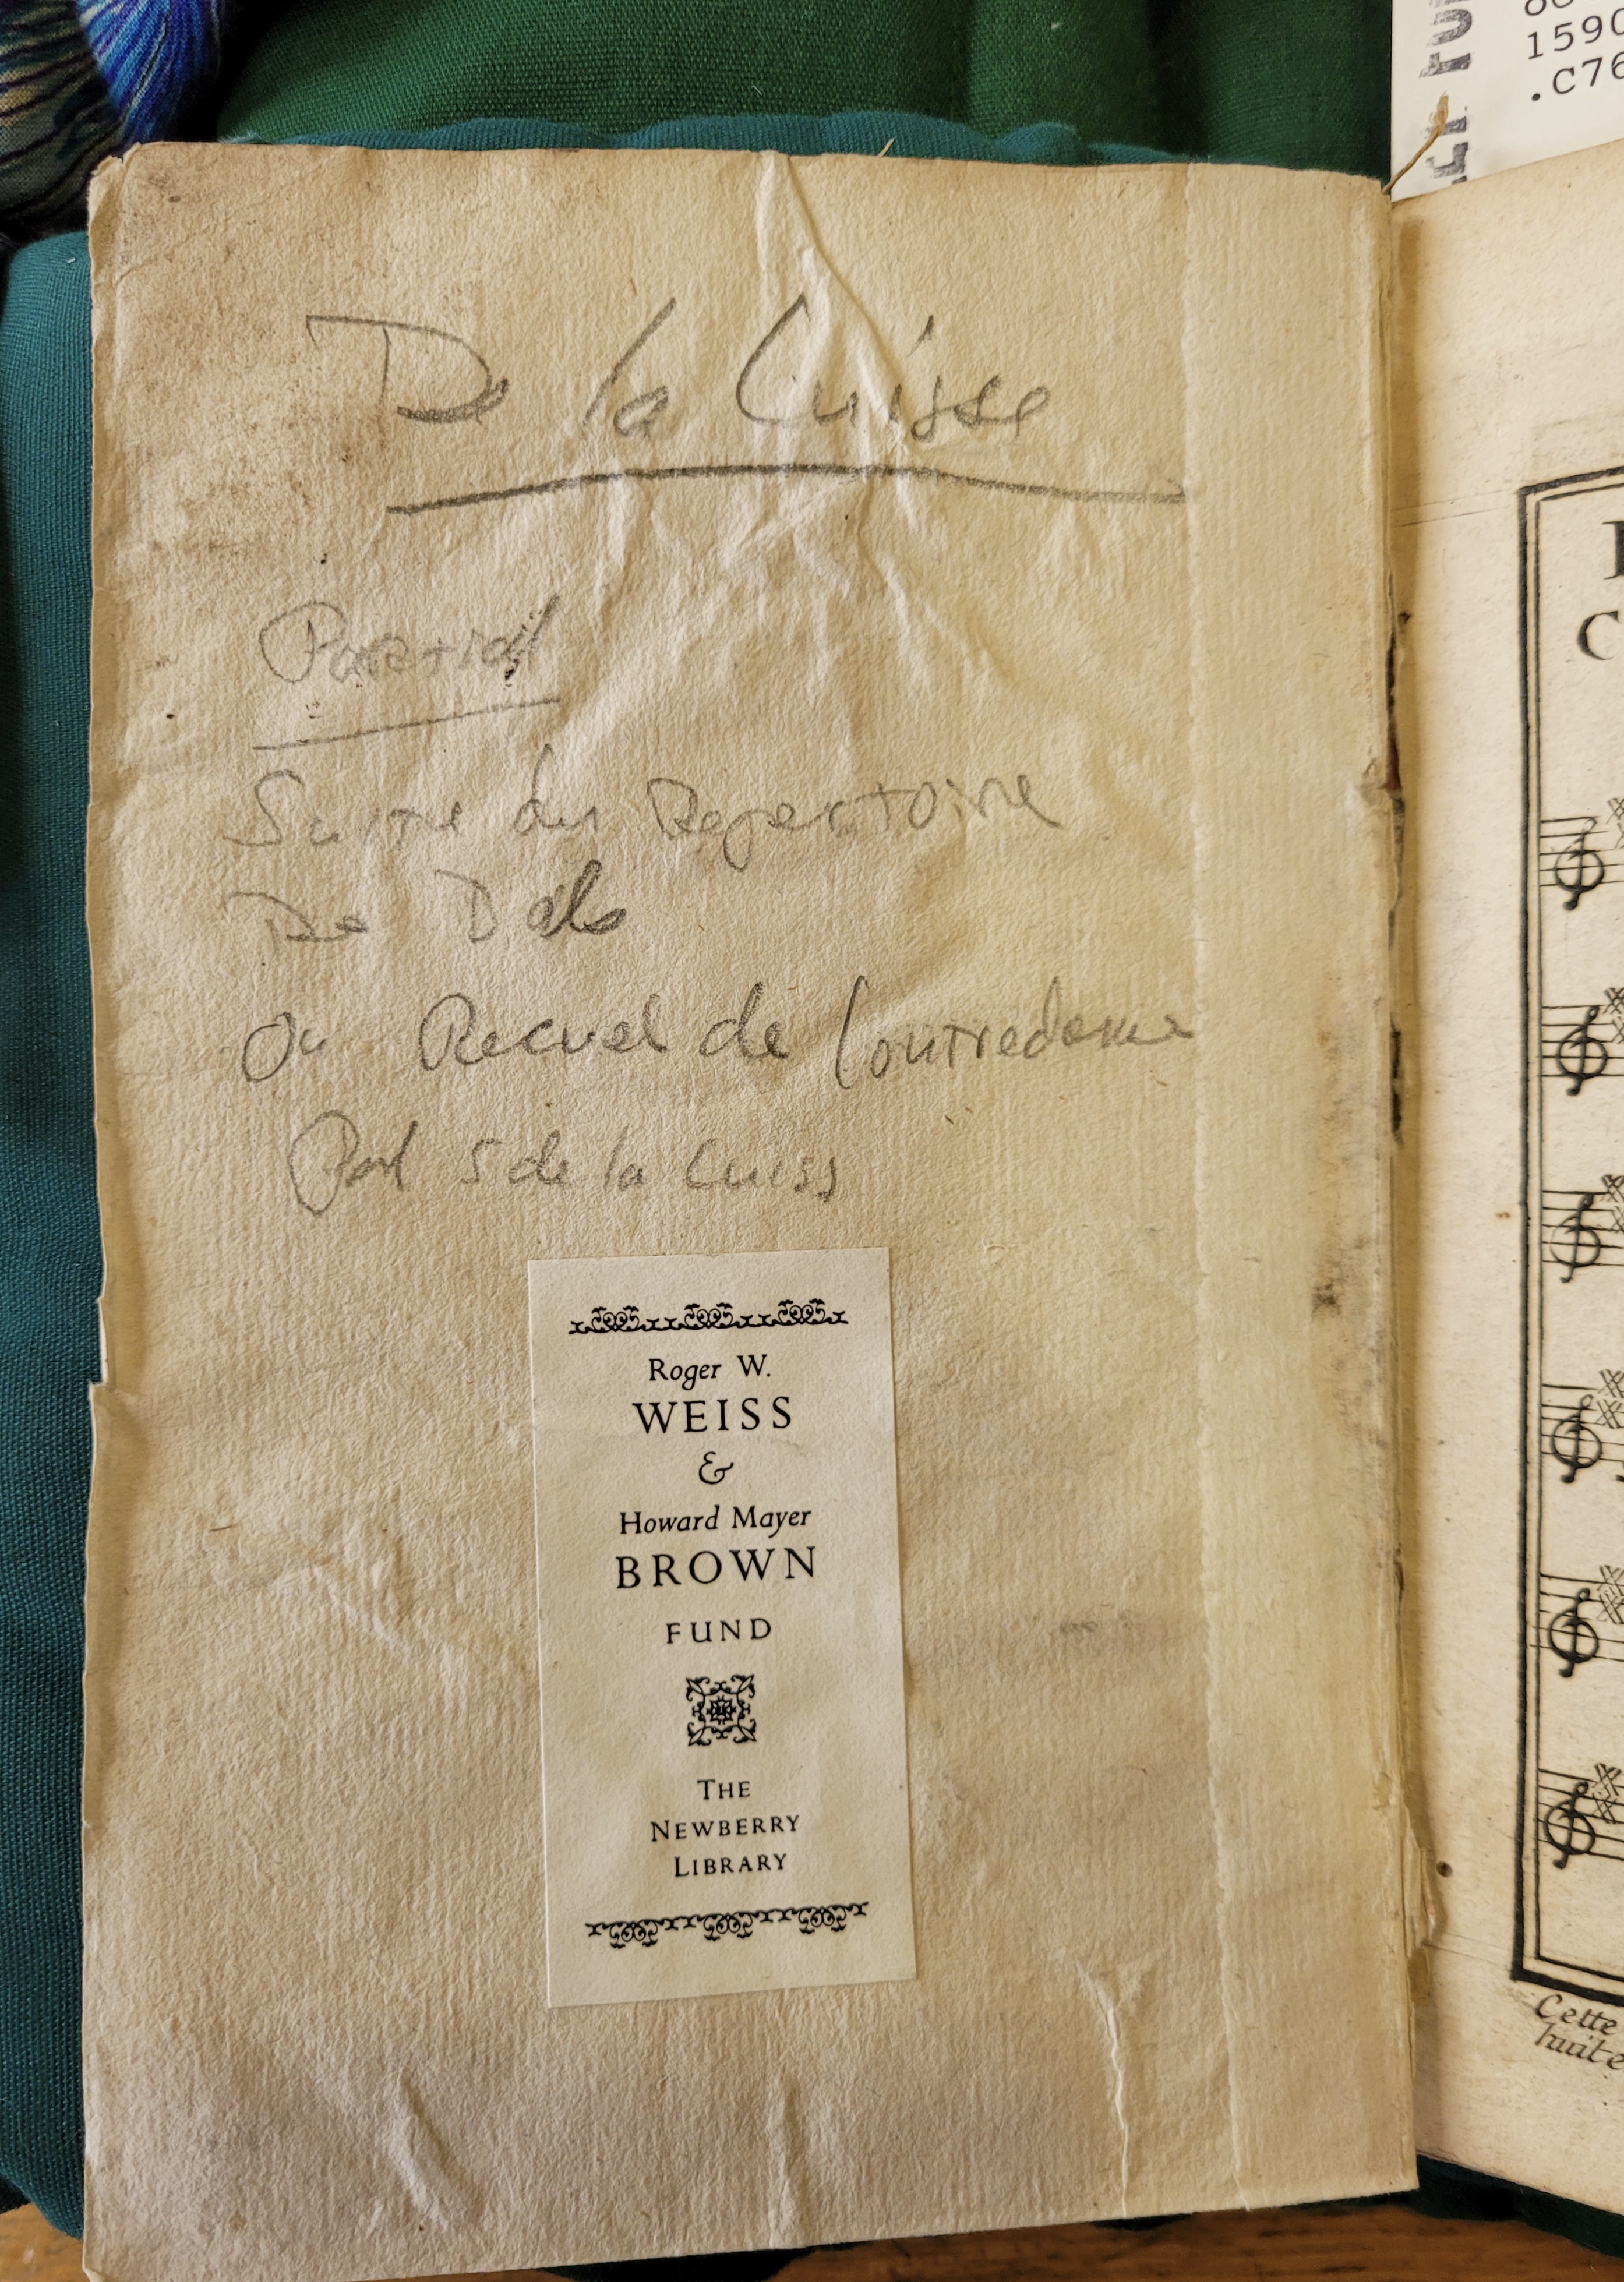 De la Cuisse
Suitte du Repertoire
De Bals
Ou Recuel de Contredanse
Par S de la Cuiss
Roger W.
WEISS
&
Howard Mayer
BROWN
FUND
THE
NEWBERRY
LIBRARY
1590
.C76
C
Cette
huite